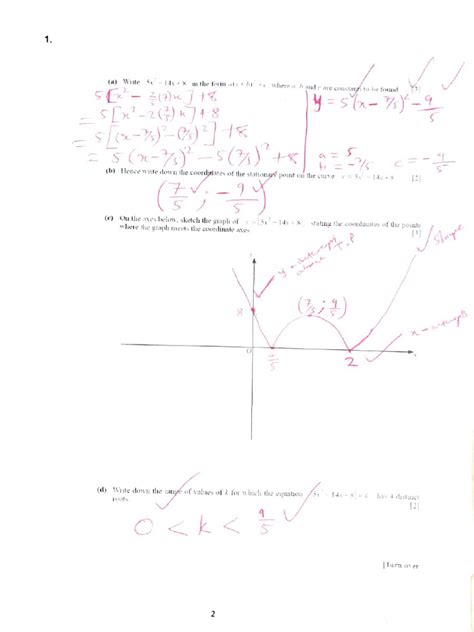 1.
(a) Write 5x² − 14x + 8 in the form a(x + b)² + c, where a, b and c are constants to be found. [3]
5[x² − 2/5(7)x] + 8
= 5[x² − 2(7/5)x] + 8
= 5[(x − 7/5)² − (7/5)²] + 8
= 5(x − 7/5)² − 5(7/5)² + 8
y = 5(x − 7/5)² − 9/5
a = 5
b = −7/5
c = −9/5
(b) Hence write down the coordinates of the stationary point on the curve y = 5x² − 14x + 8. [2]
(7/5 ; −9/5)
(c) On the axes below, sketch the graph of y = |5x² − 14x + 8|, stating the coordinates of the points
where the graph meets the coordinate axes. [3]
Shape
y-intercept
above T.P
(7/5 ; 9/5)
8
x-intercepts
O
4/5
2
x
(d) Write down the range of values of k for which the equation |5x² − 14x + 8| = k has 4 distinct
roots. [2]
0 < k < 9/5
[Turn over
2